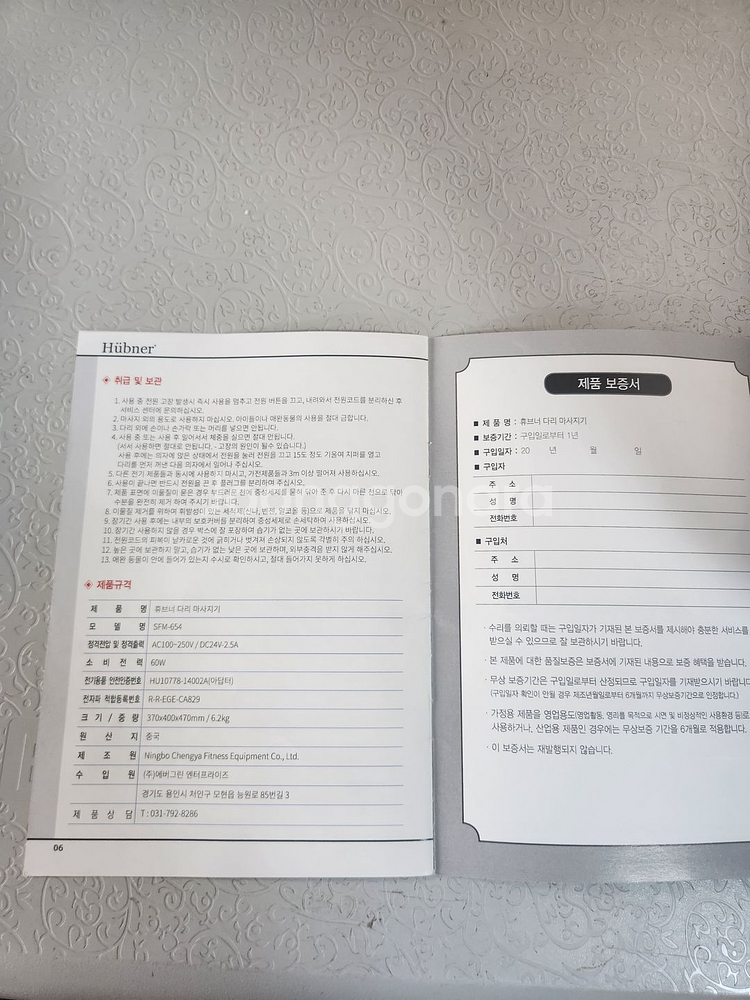 Hübner
◈ 취급 및 보관
1. 사용 중 전원 고장 발생시 즉시 사용을 멈추고 전원 버튼을 끄고, 내려와서 전원코드를 분리하신 후
서비스 센터에 문의하십시오.
2. 마사지 외의 용도로 사용하지 마십시오. 아이들이나 애완동물의 사용을 절대 금합니다.
3. 다리 외에 손이나 손가락 또는 머리를 넣으면 안됩니다.
4. 사용 중 또는 사용 후 일어서서 체중을 실으면 절대 안됩니다.
(서서 사용하면 절대로 안됩니다. - 고장의 원인이 될수 있습니다.)
사용 후에는 의자에 앉은 상태에서 전원을 눌러 전원을 끄고 15도 정도 기울여 지퍼를 열고
다리를 먼저 꺼낸 다음 의자에서 일어나 주십시오.
5. 다른 전기 제품들과 동시에 사용하지 마시고, 가전제품들과 3m 이상 떨어져 사용하십시오.
6. 사용이 끝나면 반드시 전원을 끈 후 플러그를 분리하여 주십시오.
7. 제품 표면에 이물질이 묻은 경우 부드러운 천에 중성세제를 묻혀 닦아 준 후 다시 마른 천으로 닦아
수분을 완전히 제거 하여 주시기 바랍니다.
8. 이물질 제거를 위하여 휘발성이 있는 세척제(신나, 벤젠, 알코올 등)으로 제품을 닦지 마십시오.
9. 장기간 사용 후에는 내부의 보호커버를 분리하여 중성세제로 손세탁하여 사용하십시오.
10. 장기간 사용하지 않을 경우 박스에 잘 포장하여 습기가 없는 곳에 보관하시기 바랍니다.
11. 전원코드의 피복이 날카로운 것에 긁히거나 벗겨져 손상되지 않도록 각별히 주의 하십시오.
12. 높은 곳에 보관하지 말고, 습기가 없는 낮은 곳에 보관하며, 외부충격을 받지 않게 해주십시오.
13. 애완 동물이 안에 들어가 있는지 수시로 확인하시고, 절대 들어가지 못하게 하십시오.
◈ 제품규격
제 품 명 휴브너 다리 마사지기
모 델 명 SFM-654
정격전압 및 정격출력 AC100~250V / DC24V-2.5A
소 비 전 력 60W
전기용품 안전인증번호 HU10778-14002A(아답터)
전자파 적합등록번호 R-R-EGE-CA829
크 기 / 중 량 370x400x470mm / 6.2kg
원 산 지 중국
제 조 원 Ningbo Chengya Fitness Equipment Co., Ltd.
수 입 원 (주)에버그린 엔터프라이즈
경기도 용인시 처인구 모현읍 능원로 85번길 3
제 품 상 담 T : 031-792-8286
06
제품 보증서
■ 제 품 명 : 휴브너 다리 마사지기
■ 보증기간 : 구입일로부터 1년
■ 구입일자 : 20 년 월 일
■ 구입자
주 소
성 명
전화번호
■ 구입처
주 소
성 명
전화번호
· 수리를 의뢰할 때는 구입일자가 기재된 본 보증서를 제시해야 충분한 서비스를
받으실 수 있으므로 잘 보관하시기 바랍니다.
· 본 제품에 대한 품질보증은 보증서에 기재된 내용으로 보증 혜택을 받습니다.
· 무상 보증기간은 구입일로부터 산정되므로 구입일자를 기재받으시기 바랍니다
(구입일자 확인이 안될 경우 제조년월일로부터 6개월까지 무상보증기간으로 인정합니다.)
· 가정용 제품을 영업용도(영업활동, 영리를 목적으로 시면 및 비정상적인 사용환경 등)로
사용하거나, 산업용 제품인 경우에는 무상보증 기간을 6개월로 적용합니다.
· 이 보증서는 재발행되지 않습니다.